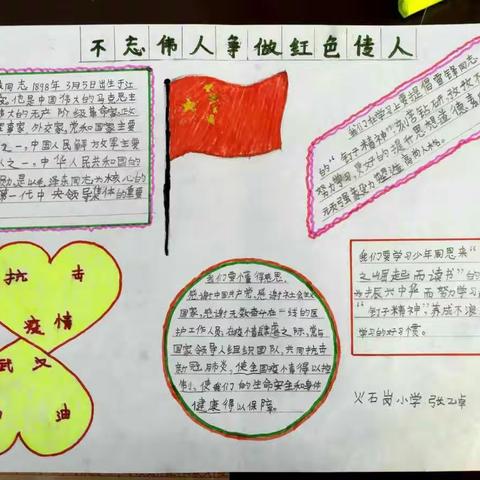 不志伟人争做红色传人
同志1898年3月5日出生于江
他是中国伟大的马克思主
大的无产阶级革命家、政
军事家 外交家,党和国家主要
之一,中国人民解放军主要
人之一,中华人民共和国的
勋,是以毛泽东同志为核心的
第一代中央领导集体的重要
我们在学习上要提倡雷锋同志
的“钉子精神”刻苦钻研孜孜不
努力学习,更好的提升思想道德素
抗击
疫情
武汉
迪
我们要懂得感恩,
感谢中国共产党,感谢社会主义
国家,感谢无数奋斗在一线的医
护工作人员,在疫情肆虐之际,党与
国家领导人组织团队,共同抗击
新冠肺炎,使全国疫情得以控
制,使我们的生命安全和身体
健康得以保障。
我们要学习少年周恩来“
之崛起而读书”的
为振兴中华而努力学习
“钉子精神”,养成不浪
学习的好习惯。
火石岗小学 张工卓